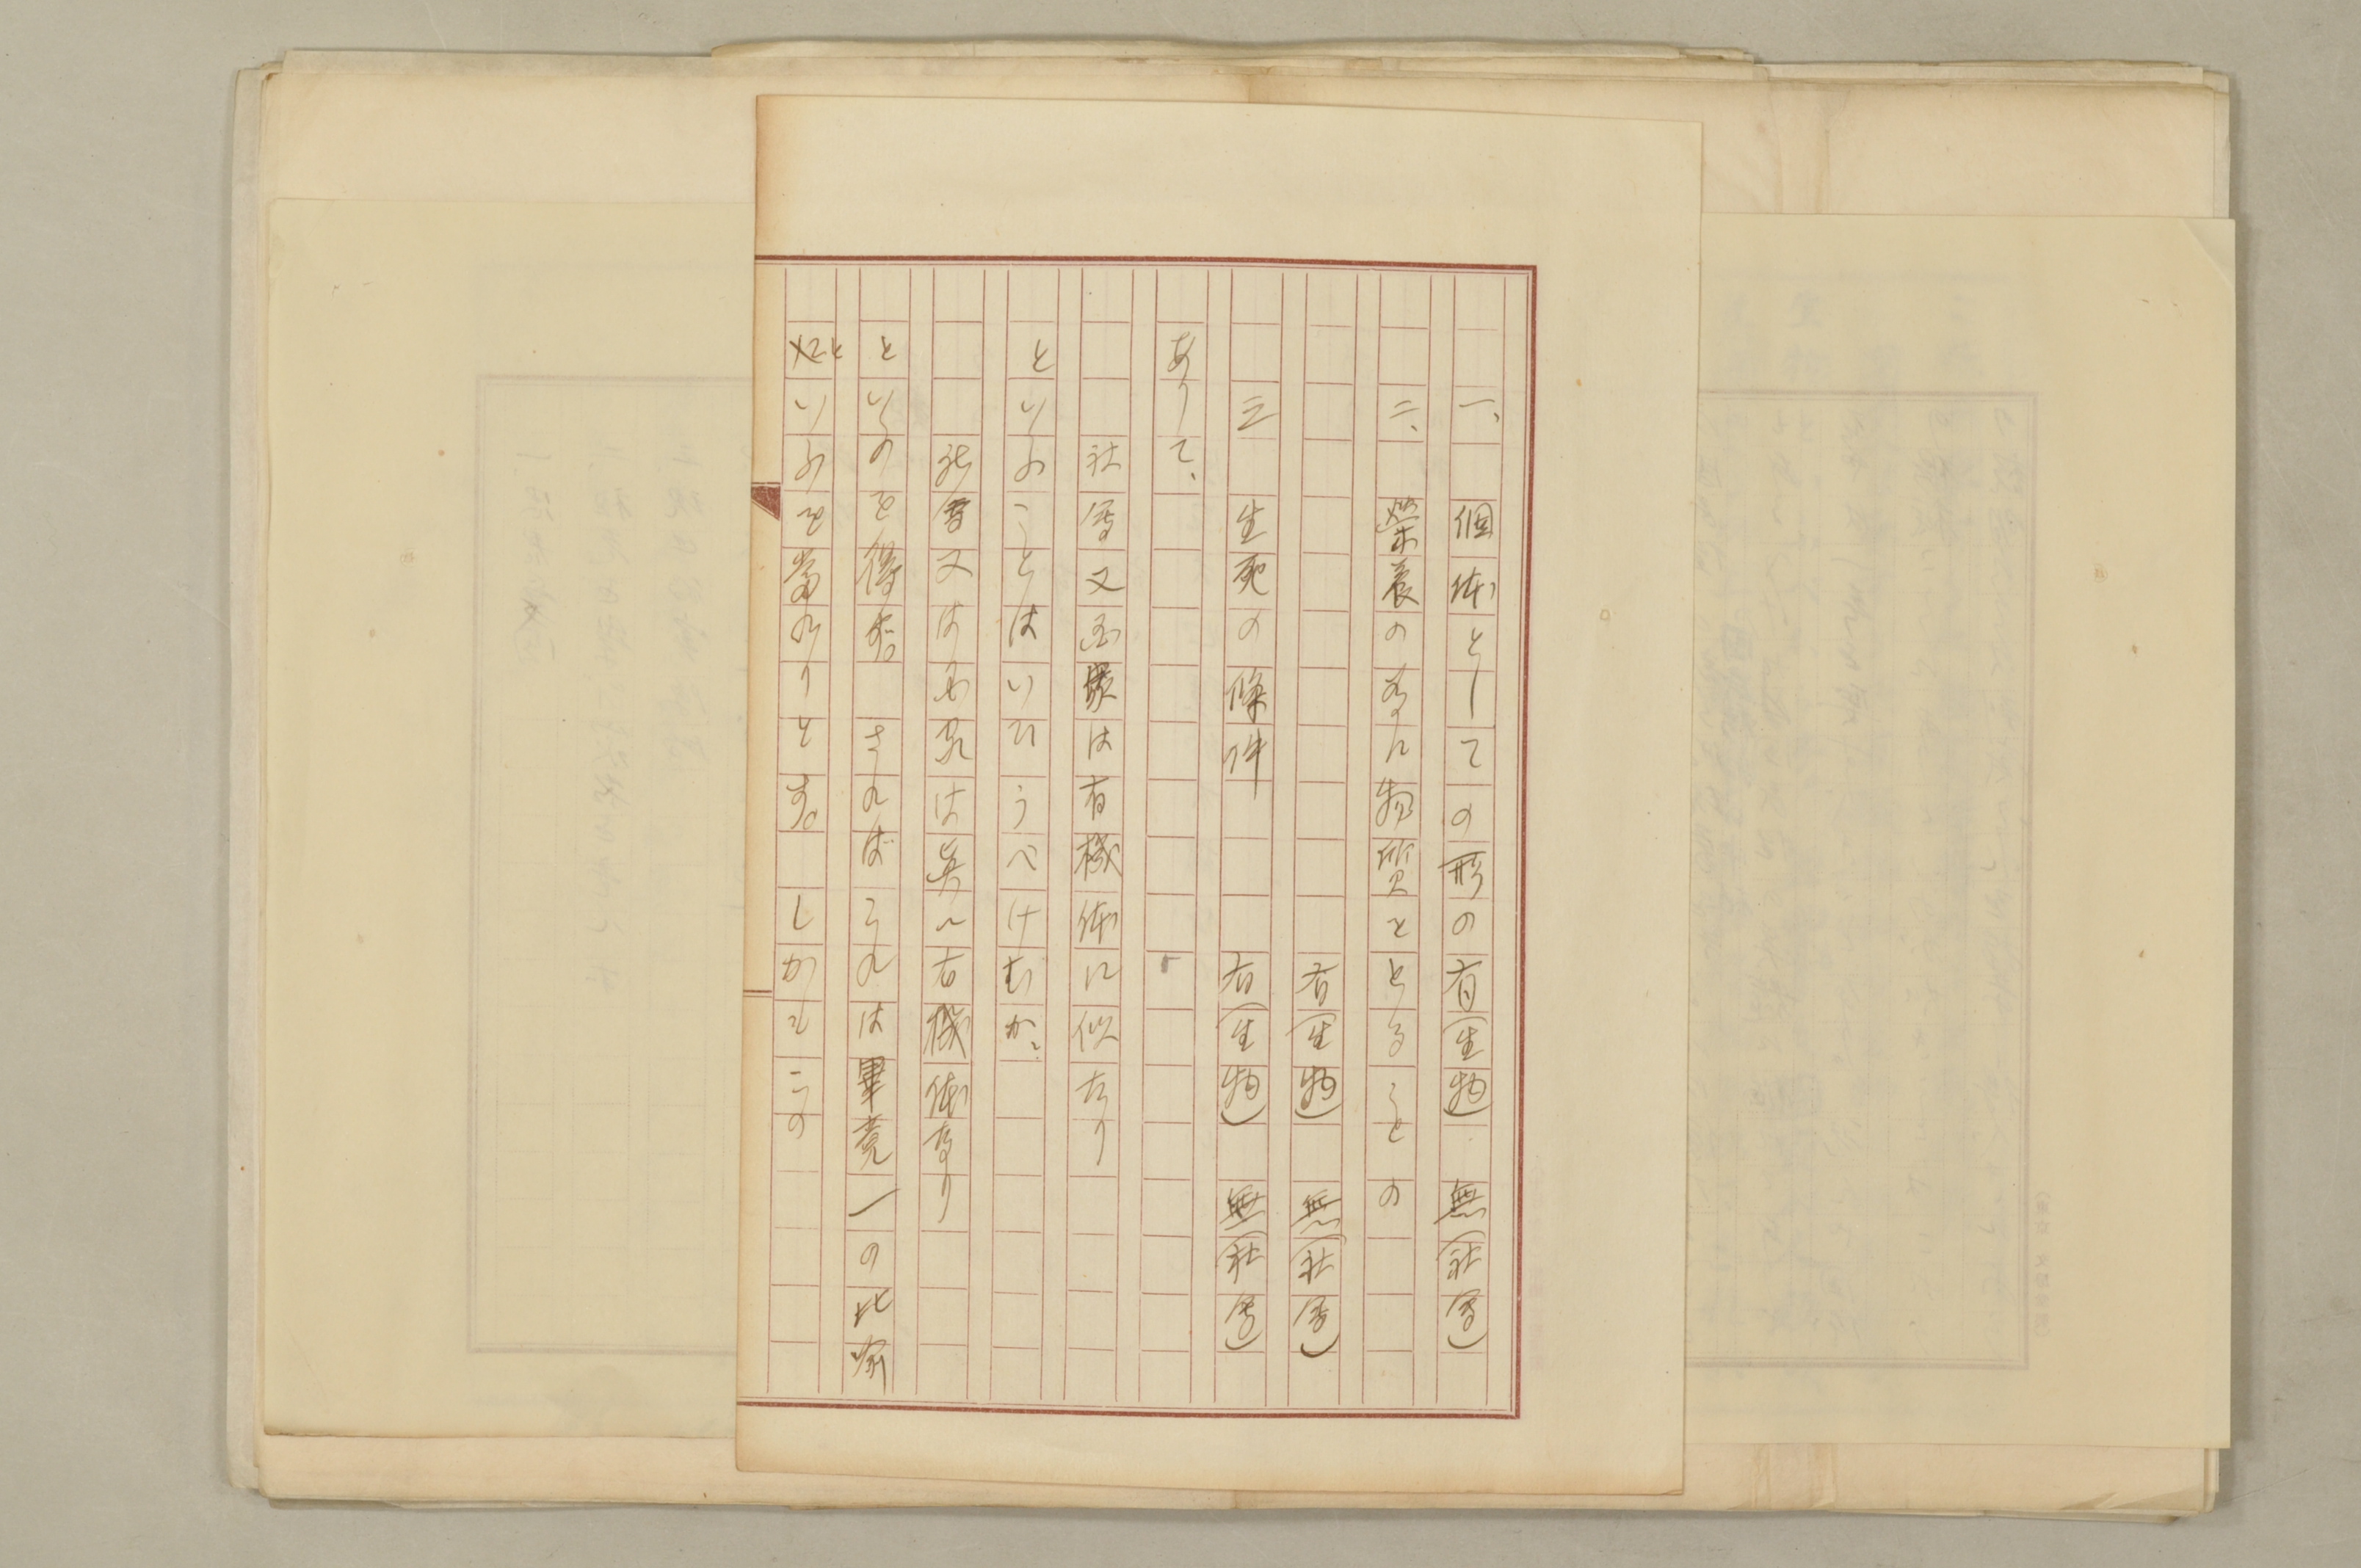 一、個体としての形の有(生物) 無(社会)
二、榮養の為に物質をとることの
有(生物) 無(社会)
三 生死の條件 有(生物) 無(社会)
ありて、
社会又国家は有機体に似たり
といふことはいひうべけむか、
社会又は国家は眞の有機体なり
といふのを得ず。さればこれは畢竟一の比喩
といふを當れりとす。しかもこの